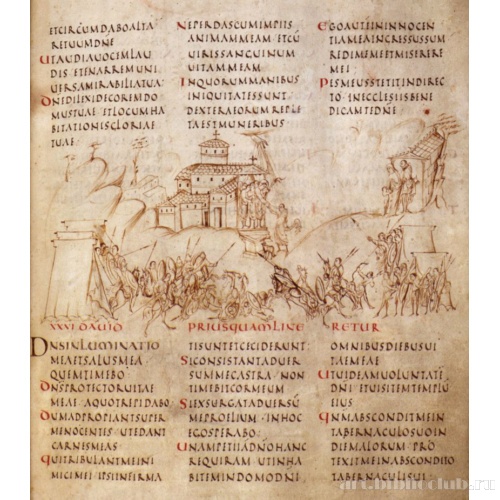 ET CIRCUMDABO ALTA
RE TUUM DNE
UT AUDIAM UOCEM LAU
DIS ET ENARREM UNI
UERSA MIRABILIA TUA
DNE DILEXI DECOREM DO
MUS TUAE ET LOCUM HA
BITATIONIS GLORIAE
TUAE
NE PERDAS CUM IMPIIS
ANIMAM MEAM ET CU
UIRIS SANGUINUM
UITAM MEAM
IN QUORUM MANIBUS
INIQUITATES SUNT
DEXTERA EORUM REPLE
TA EST MUNERIBUS
EGO AUTEM IN INNOCEN
TIA MEA INGRESSUS SUM
REDIME ME ET MISERERE
MEI
PES MEUS STETIT IN DIREC
TO IN ECCLESIIS BENE
DICAM TE DNE
XXVI DAUID PRIUSQUAM LINE RETUR
DNS INLUMINATIO
MEA ET SALUS MEA
QUEM TIMEBO
DNS PROTECTOR UITAE
MEAE A QUO TREPIDABO
DUM ADPROPIANT SUPER
ME NOCENTES UT EDANT
CARNES MEAS
QUI TRIBULANT ME INI
MICI MEI IPSI INFIRMA
TI SUNT ET CECIDERUNT
SI CONSISTANT ADUER
SUM ME CASTRA NON
TIMEBIT COR MEUM
SI EXSURGAT ADUERSU
ME PROELIUM IN HOC
EGO SPERABO
UNAM PETII A DNO HANC
REQUIRAM UT INHA
BITEM IN DOMO DNI
OMNIBUS DIEBUS UI
TAE MEAE
UT UIDEAM UOLUNTATE
DNI ET UISITEM TEMPLU
EIUS
QNM ABSCONDIT ME IN
TABERNACULO SUO IN
DIE MALORUM PRO
TEXIT ME IN ABSCONDITO
TABERNACULI SUI
art.biblioclub.ru